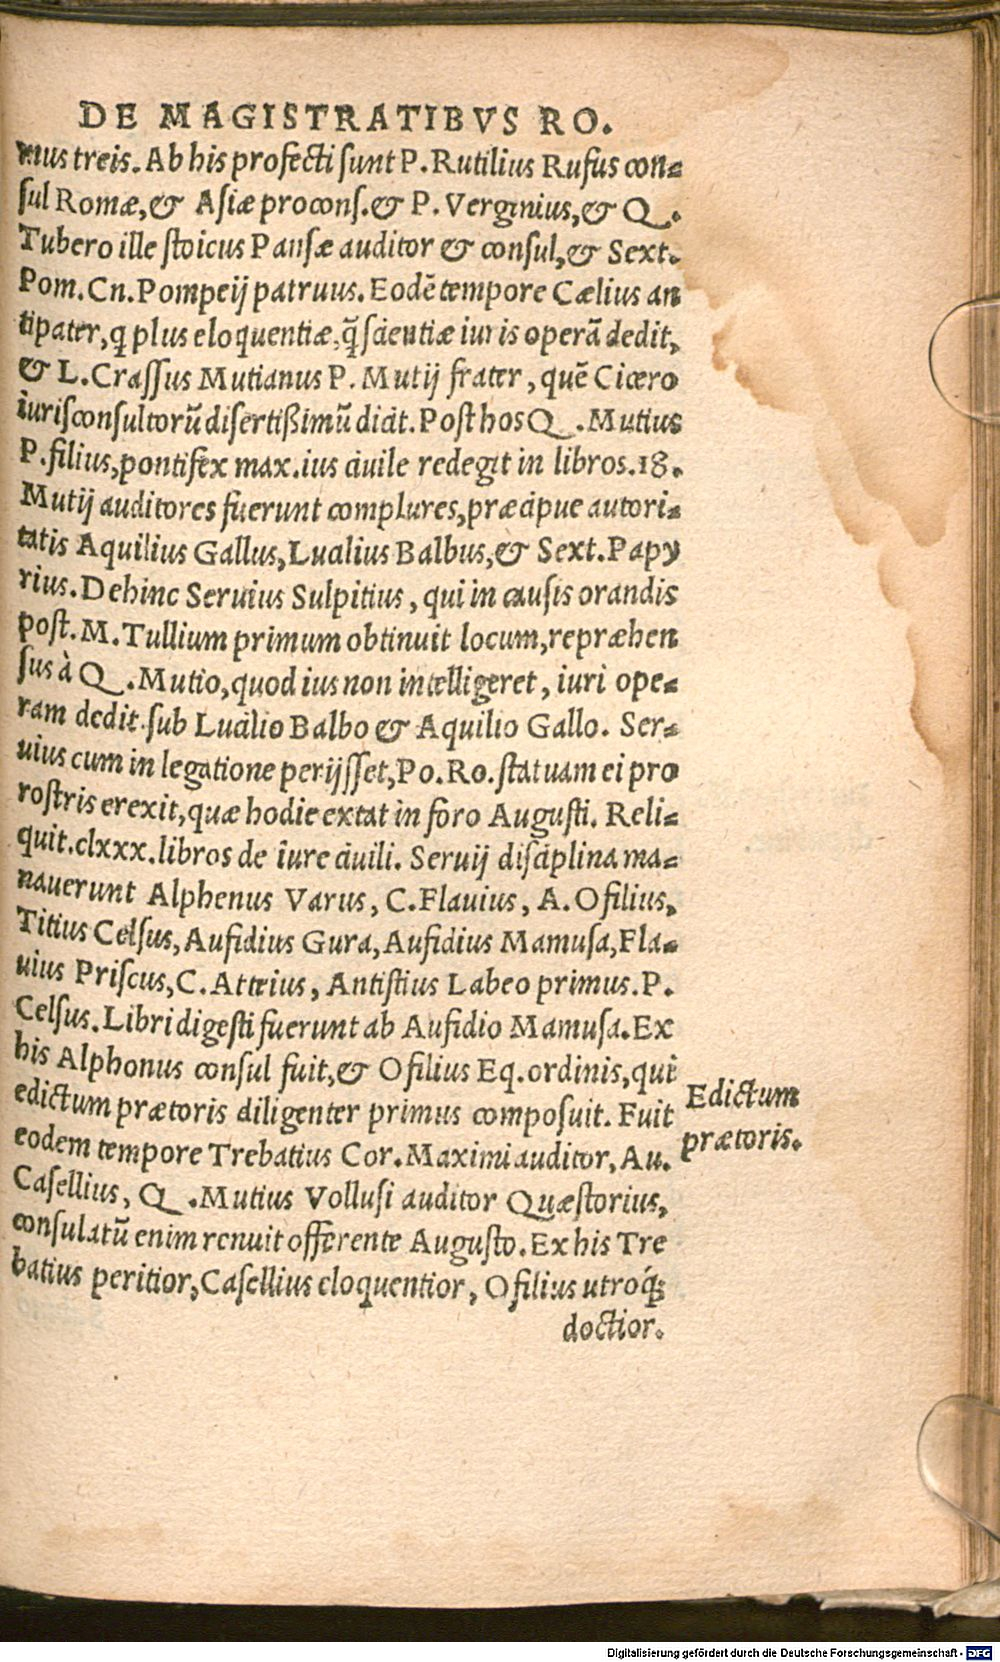 DE MAGISTRATIBVS RO.
mus treis. Ab his profecti sunt P. Rutilius Rufus con-
sul Romæ, & Asiæ procons. & P. Verginius, & Q.
Tubero ille stoicus Pansæ auditor & consul, & Sext.
Pom. Cn. Pompeij patruus. Eodē tempore Cælius an
tipater, q plus eloquentiæ, q̃ scientiæ iuris operā dedit,
& L. Crassus Mutianus P. Mutij frater, quē Cicero
iurisconsultorū disertißimū dicit. Post hos Q. Mutius
P. filius, pontifex max. ius ciuile redegit in libros. 18.
Mutij auditores fuerunt complures, præcipue autori-
tatis Aquilius Gallus, Lucilius Balbus, & Sext. Papy
rius. Dehinc Seruius Sulpitius, qui in causis orandis
post. M. Tullium primum obtinuit locum, repræhen
sus à Q. Mutio, quod ius non intelligeret, iuri ope-
ram dedit sub Lucilio Balbo & Aquilio Gallo. Ser-
uius cum in legatione perijsset, Po. Ro. statuam ei pro
rostris erexit, quæ hodie extat in foro Augusti. Reli-
quit. clxxx. libros de iure ciuili. Seruij disciplina ma-
nauerunt Alphenus Varus, C. Flauius, A. Ofilius,
Titius Celsus, Aufidius Gura, Aufidius Mamusa, Fla-
uius Priscus, C. Atteius, Antistius Labeo primus. P.
Celsus. Libri digesti fuerunt ab Aufidio Mamusa. Ex
his Alphonus consul fuit, & Ofilius Eq. ordinis, qui
edictum prætoris diligenter primus composuit. Fuit
eodem tempore Trebatius Cor. Maximi auditor, Au.
Casellius, Q. Mutius Vollusi auditor Quæstorius,
consulatū enim renuit offerente Augusto. Ex his Tre
batius peritior, Casellius eloquentior, Ofilius utroq́;
doctior.
Edictum
prætoris.
Digitalisierung gefördert durch die Deutsche Forschungsgemeinschaft - DFG